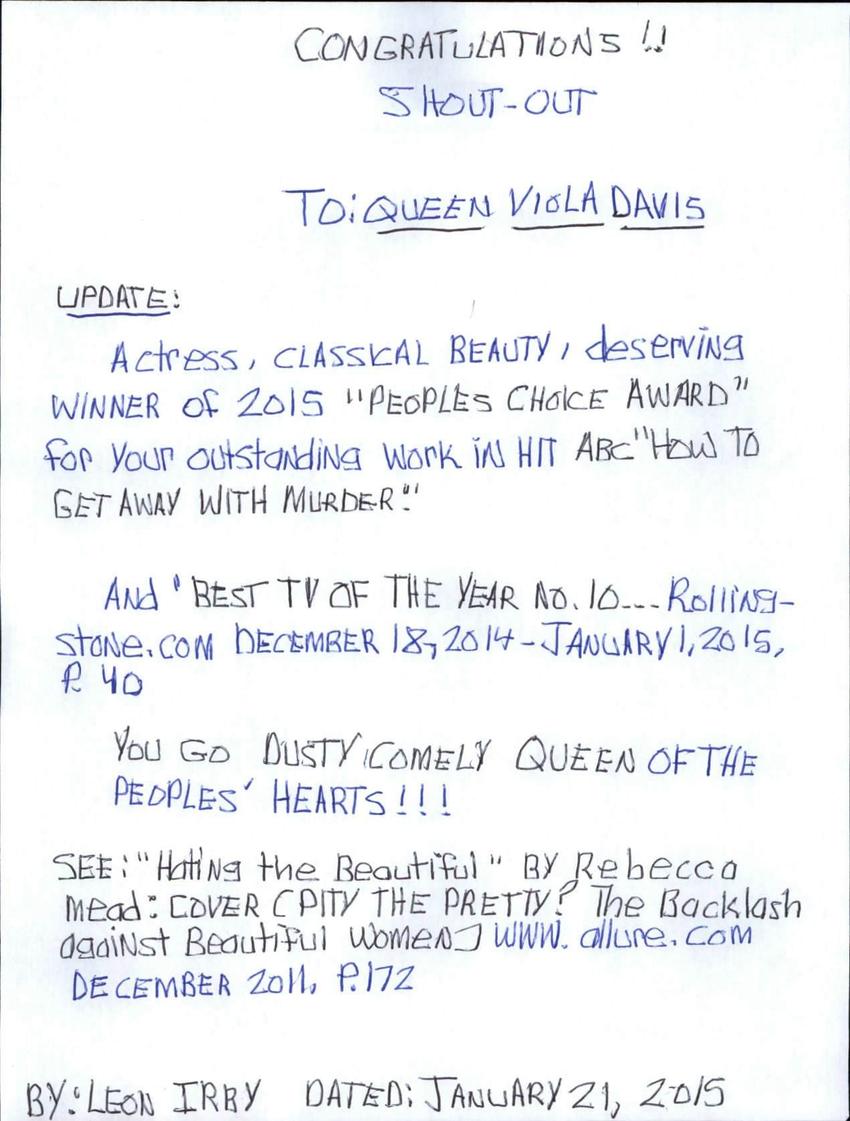 CONGRATULATIONS !!
SHOUT-OUT
TO: QUEEN VIOLA DAVIS
UPDATE:
Actress, CLASSICAL BEAUTY, deserving
WINNER of 2015 "PEOPLES CHOICE AWARD"
for your outstanding work in HIT ABC "HOW TO
GET AWAY WITH MURDER."
And 'BEST TV OF THE YEAR NO. 10... Rolling-
stone.com DECEMBER 18, 2014 - JANUARY 1, 2015,
P. 40
YOU GO DUSTY, COMELY QUEEN OF THE
PEOPLES' HEARTS!!!
SEE: "Hating the Beautiful" BY Rebecca
Mead: COVER [ PITY THE PRETTY? The Backlash
against Beautiful Women] WWW. allure.com
DECEMBER 2011, P.172
BY: LEON IRBY DATED: JANUARY 21, 2015